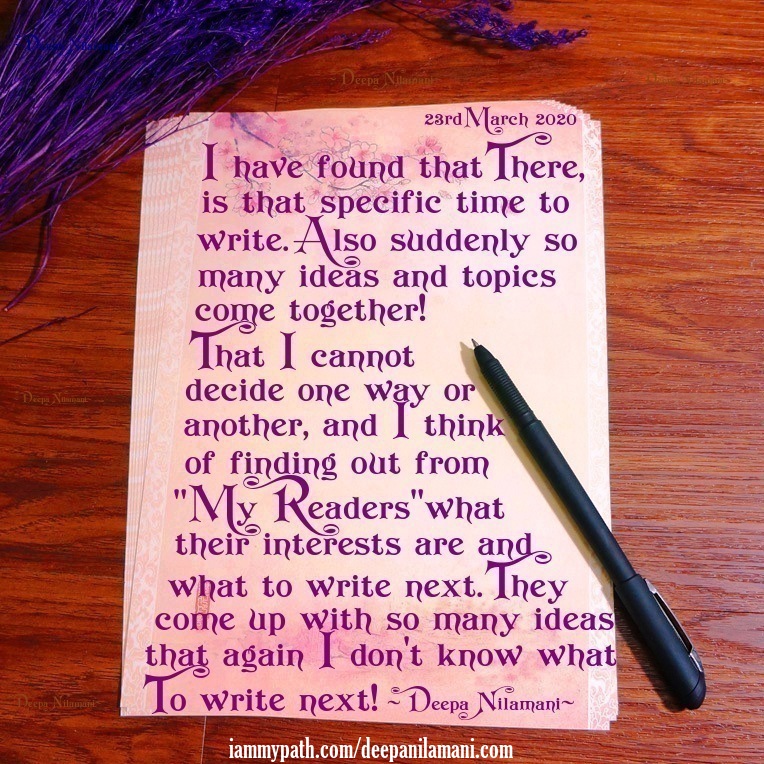 Deepa Nilamani
~Deepa Nilamani~
23rd March 2020
I have found that There,
is that specific time to
write. Also suddenly so
many ideas and topics
come together!
That I cannot
decide one way or
~Deepa Nilamani~
another, and I think
of finding out from
"My Readers" what
their interests are and
what to write next. They
come up with so many ideas
that again I don't know what
To write next! ~Deepa Nilamani~
~Deepa Nilamani~
iammypath.com/deepanilamani.com